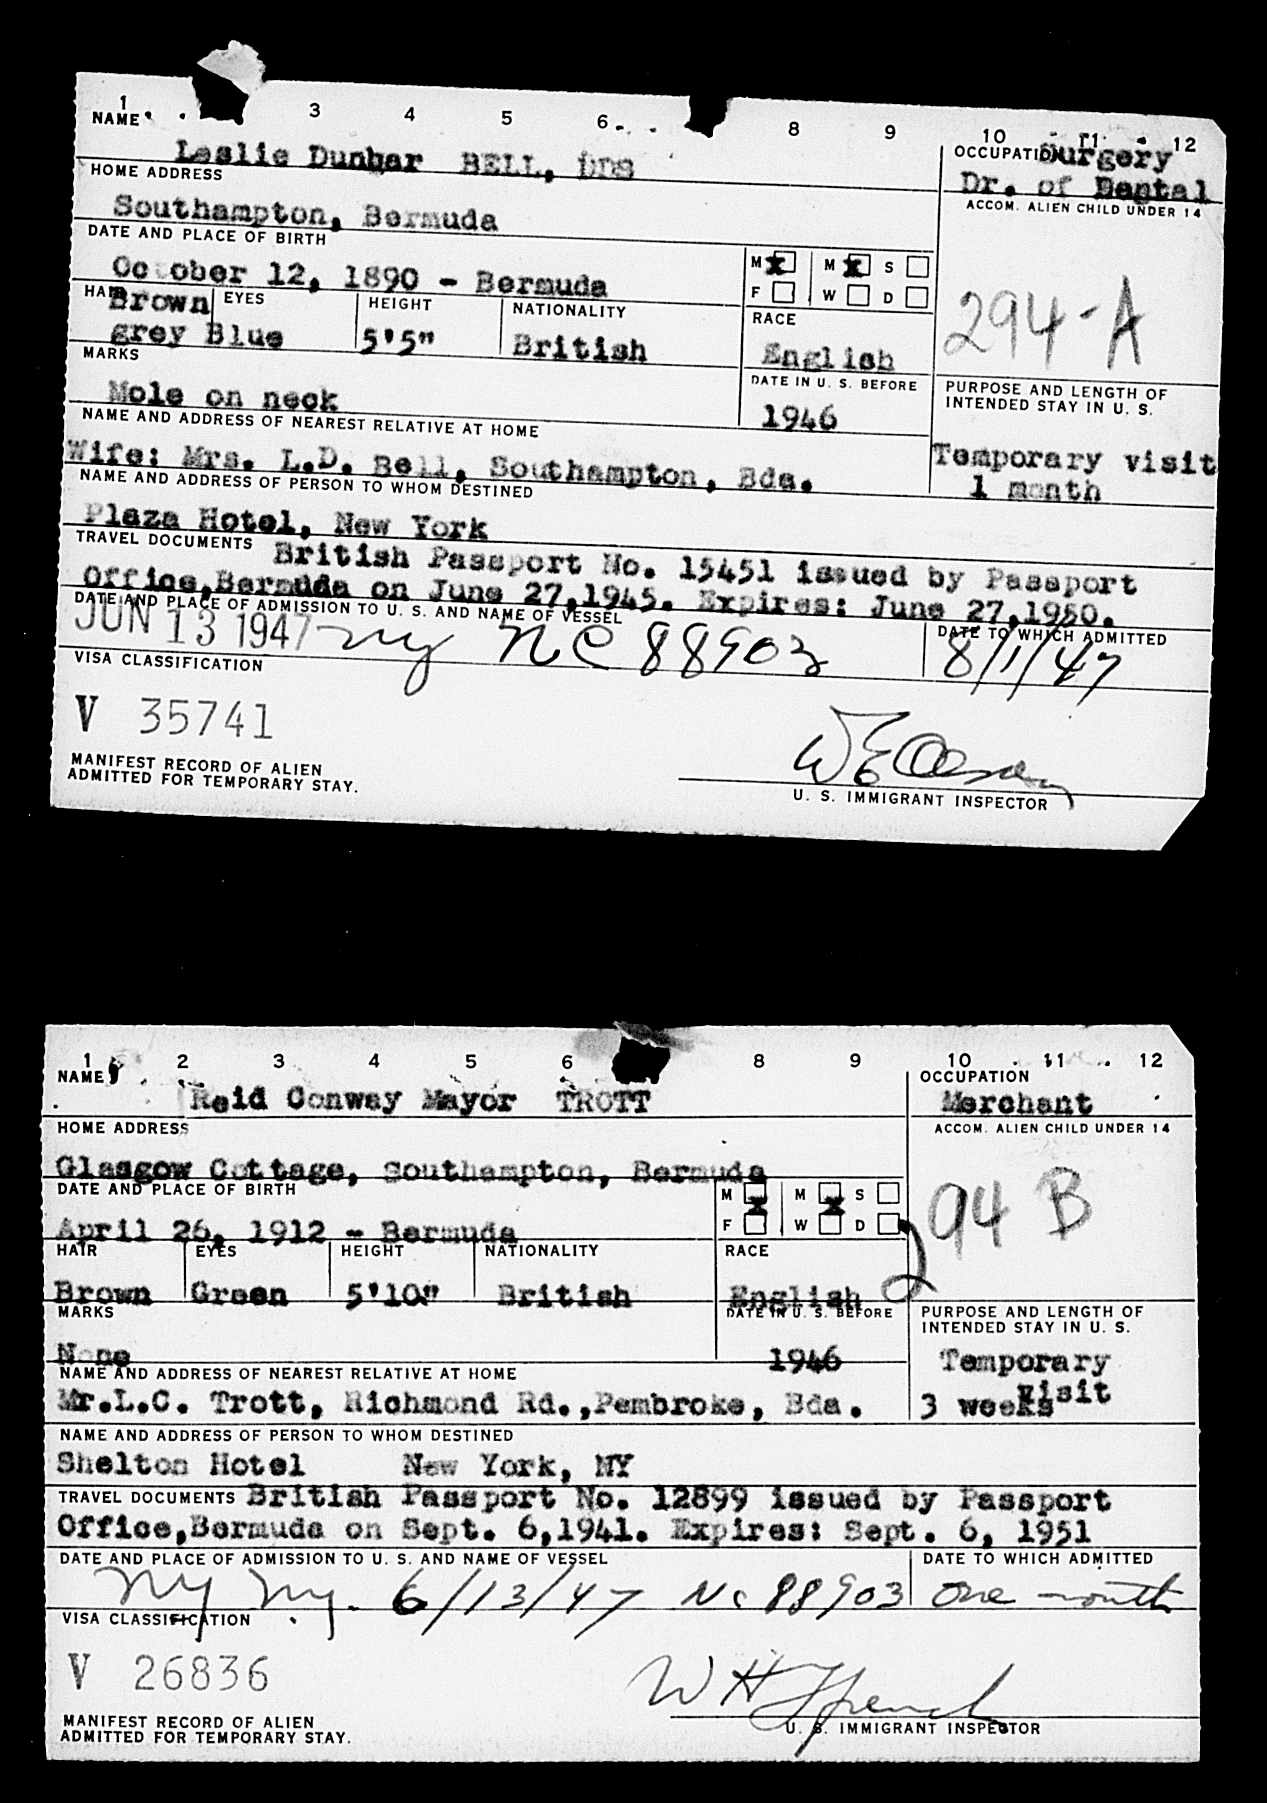 1 3 4 5 6 8 9 10 11 12
NAME OCCUPATION Surgery
Leslie Dunbar BELL, DDS Dr. of Dental
HOME ADDRESS ACCOM. ALIEN CHILD UNDER 14
Southampton, Bermuda
DATE AND PLACE OF BIRTH M x M x S
October 12, 1890 - Bermuda F W D
294-A
HAIR Brown EYES HEIGHT NATIONALITY RACE
grey Blue 5'5" British English
MARKS DATE IN U. S. BEFORE PURPOSE AND LENGTH OF
INTENDED STAY IN U. S.
Mole on neck 1946
NAME AND ADDRESS OF NEAREST RELATIVE AT HOME Temporary visit
Wife: Mrs. L.D. Bell, Southampton, Bda. 1 month
NAME AND ADDRESS OF PERSON TO WHOM DESTINED
Plaza Hotel, New York
TRAVEL DOCUMENTS British Passport No. 15451 issued by Passport
Office,Bermuda on June 27,1945. Expires: June 27,1950.
DATE AND PLACE OF ADMISSION TO U. S. AND NAME OF VESSEL DATE TO WHICH ADMITTED
JUN 13 1947 ny NC 88903 8/1/47
VISA CLASSIFICATION
V 35741
MANIFEST RECORD OF ALIEN
ADMITTED FOR TEMPORARY STAY.
U. S. IMMIGRANT INSPECTOR
1 2 3 4 5 6 8 9 10 11 12
NAME OCCUPATION
Reid Conway Mayor TROTT Merchant
HOME ADDRESS ACCOM. ALIEN CHILD UNDER 14
Glasgow Cottage, Southampton, Bermuda
DATE AND PLACE OF BIRTH M x M x S
April 26, 1912 - Bermuda F W D
294 B
HAIR EYES HEIGHT NATIONALITY RACE
Brown Green 5'10" British English
MARKS DATE IN U. S. BEFORE PURPOSE AND LENGTH OF
INTENDED STAY IN U. S.
None 1946 Temporary
NAME AND ADDRESS OF NEAREST RELATIVE AT HOME visit
Mr.L.C. Trott, Richmond Rd.,Pembroke, Bda. 3 weeks
NAME AND ADDRESS OF PERSON TO WHOM DESTINED
Shelton Hotel New York, NY
TRAVEL DOCUMENTS British Passport No. 12899 issued by Passport
Office,Bermuda on Sept. 6,1941. Expires: Sept. 6, 1951
DATE AND PLACE OF ADMISSION TO U. S. AND NAME OF VESSEL DATE TO WHICH ADMITTED
NY ny. 6/13/47 Nc 88903 One month
VISA CLASSIFICATION
V 26836
W H French
MANIFEST RECORD OF ALIEN
ADMITTED FOR TEMPORARY STAY.
U. S. IMMIGRANT INSPECTOR